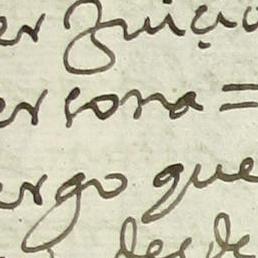 er çuiçio
ersona =
ergo que
desde